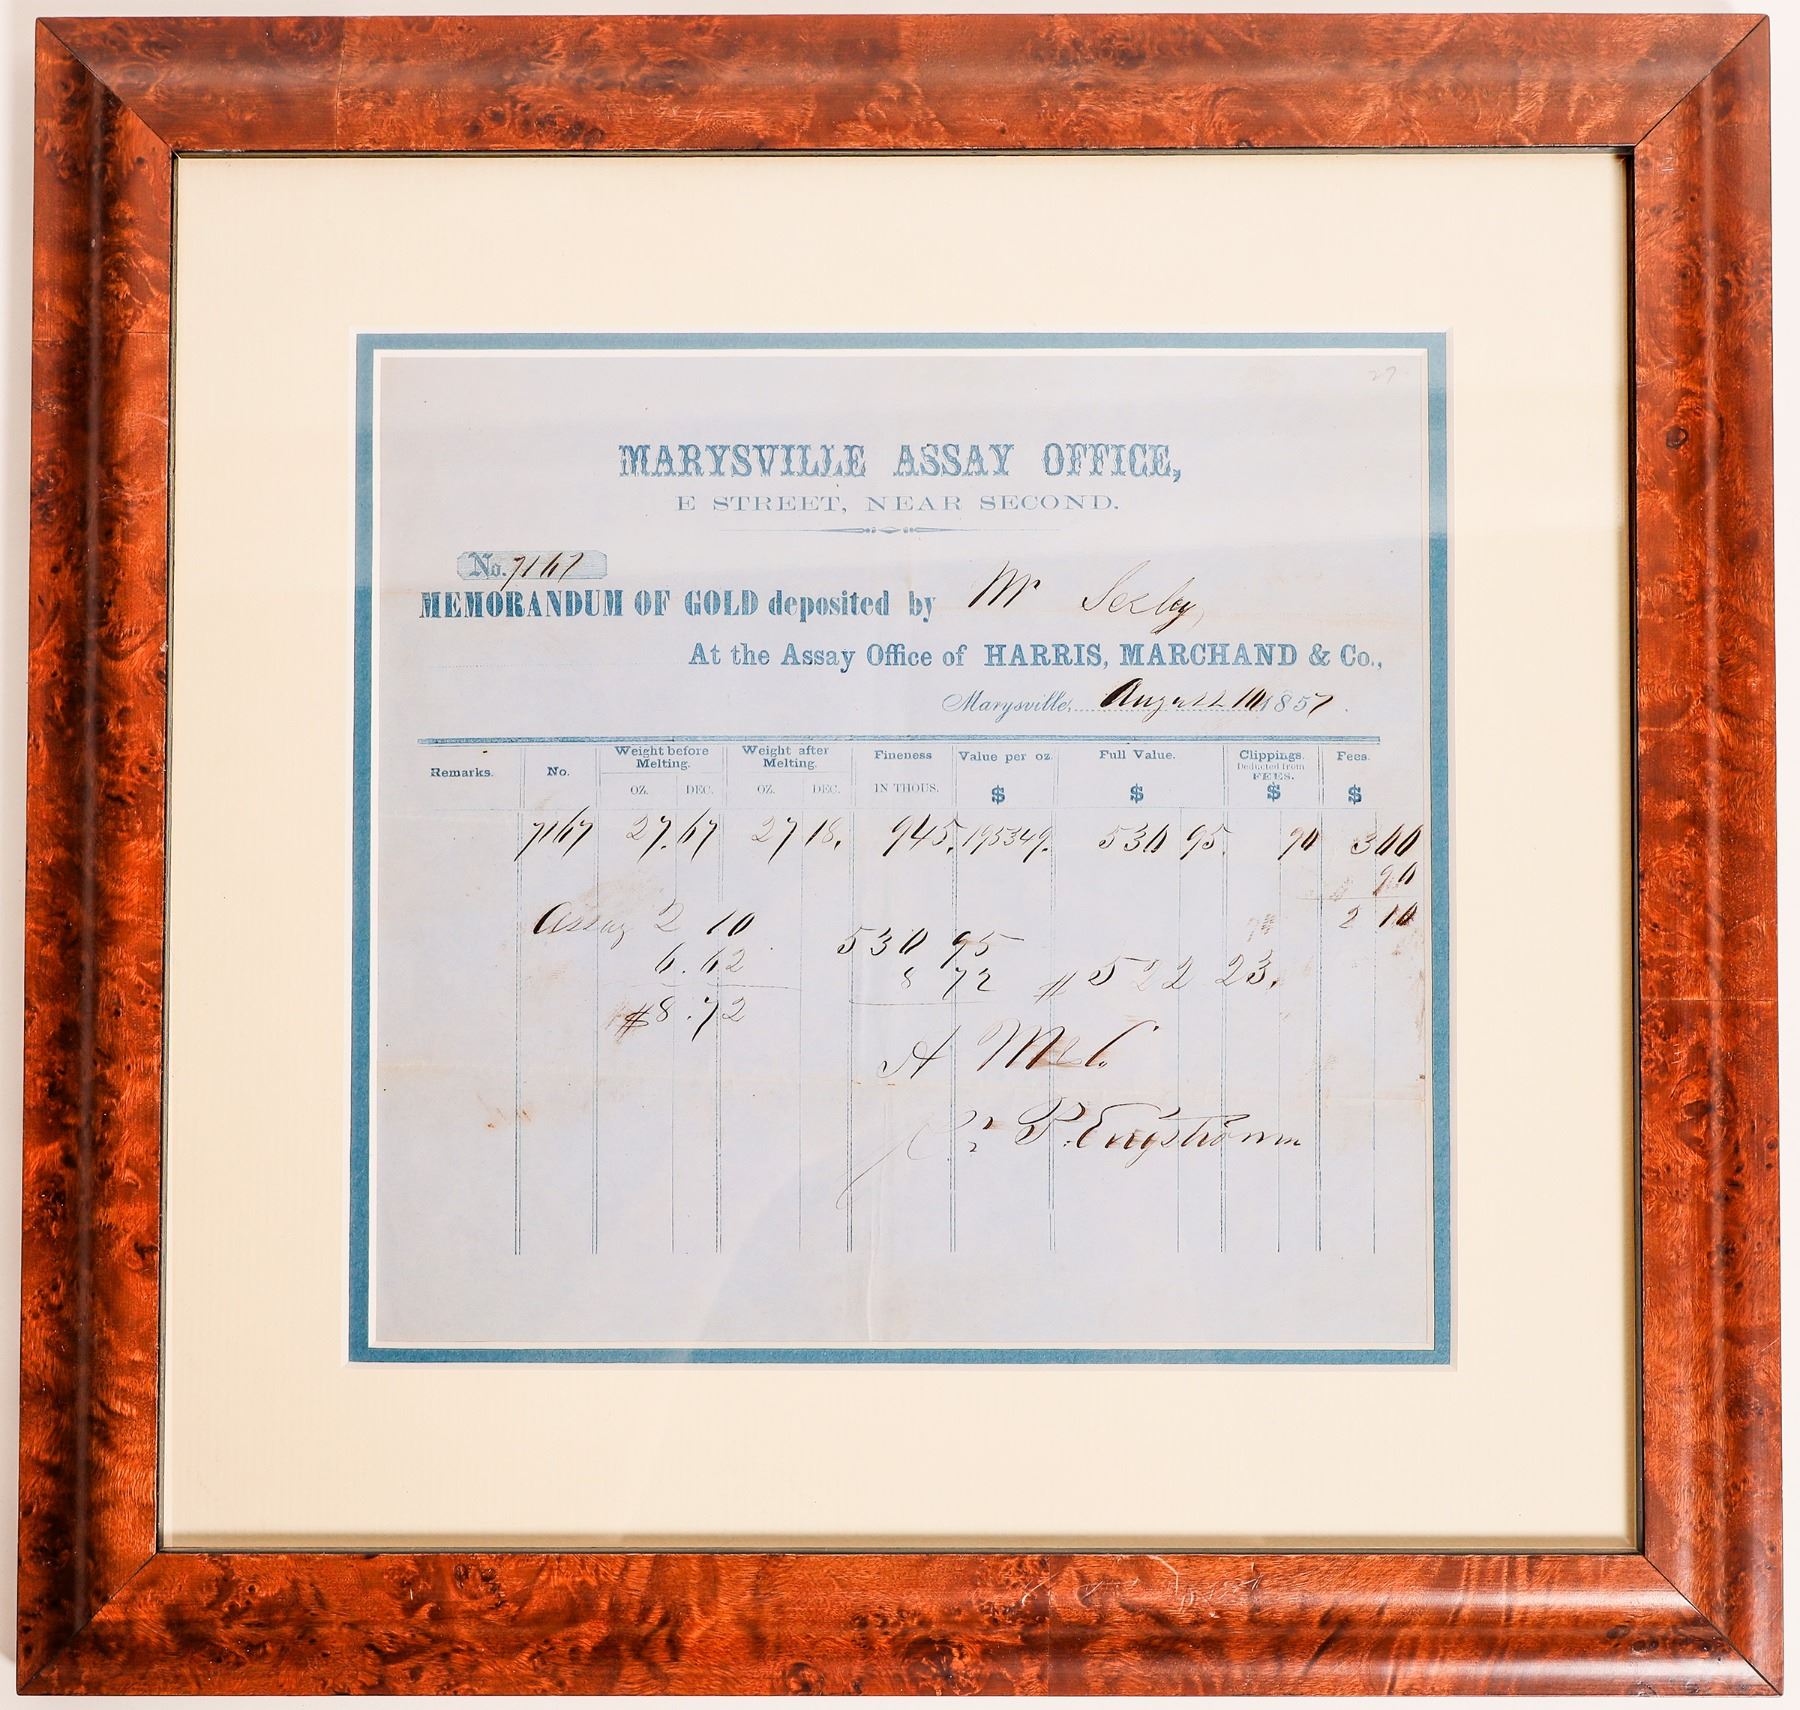 27
MARYSVILLE ASSAY OFFICE,
E STREET, NEAR SECOND.
No. 7167
MEMORANDUM OF GOLD deposited by Mr Seeley
At the Assay Office of HARRIS, MARCHAND & Co.,
Marysville, August 10 1857.
Remarks. No. Weight before Melting. Weight after Melting. Fineness Value per oz. Full Value. Clippings. Fees.
Deducted from FEES.
OZ. DEC. OZ. DEC. IN THOUS. $ $ $ $
7167 27.67 27 18. 945. 195349. 530 95. 90 300
90
Assay 2 10 2 10
530 95
6.62 8 72 $ 522 23.
$8.72
H M & C.
P. Engstromm